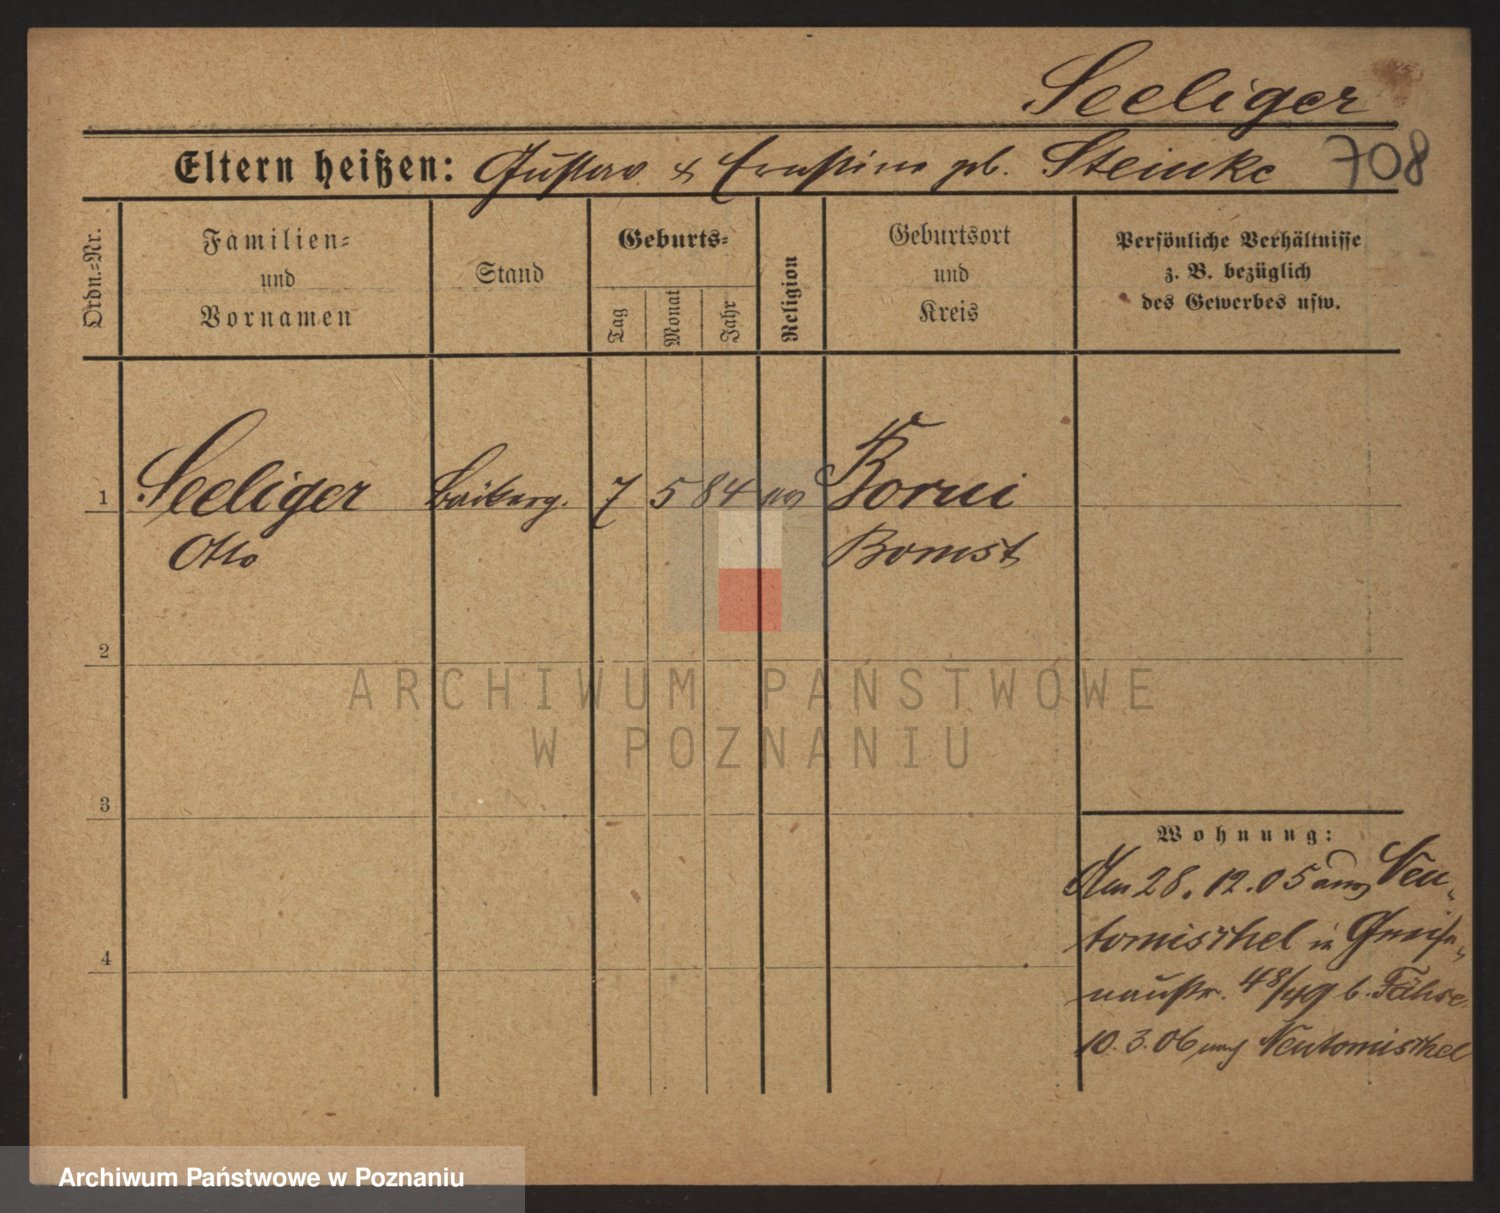 Seeliger
Eltern heißen: Gustav & Ernstine geb. Steinke 708
Ordn.-Nr.
Familien-
und
Vornamen
Stand
Geburts-
Tag
Monat
Jahr
Religion
Geburtsort
und
Kreis
Persönliche Verhältnisse
z. B. bezüglich
des Gewerbes usw.
1 Seeliger 7 5 84 Borui
Otto Bomst
2
3
4
Wohnung:
Am 28. 12. 05 aus Neu-
tomischel in Gneise-
naustr. 48/49 b. Fähse
10. 3. 06 nach Neutomischel
ARCHIWUM PAŃSTWOWE
W POZNANIU
Archiwum Państwowe w Poznaniu